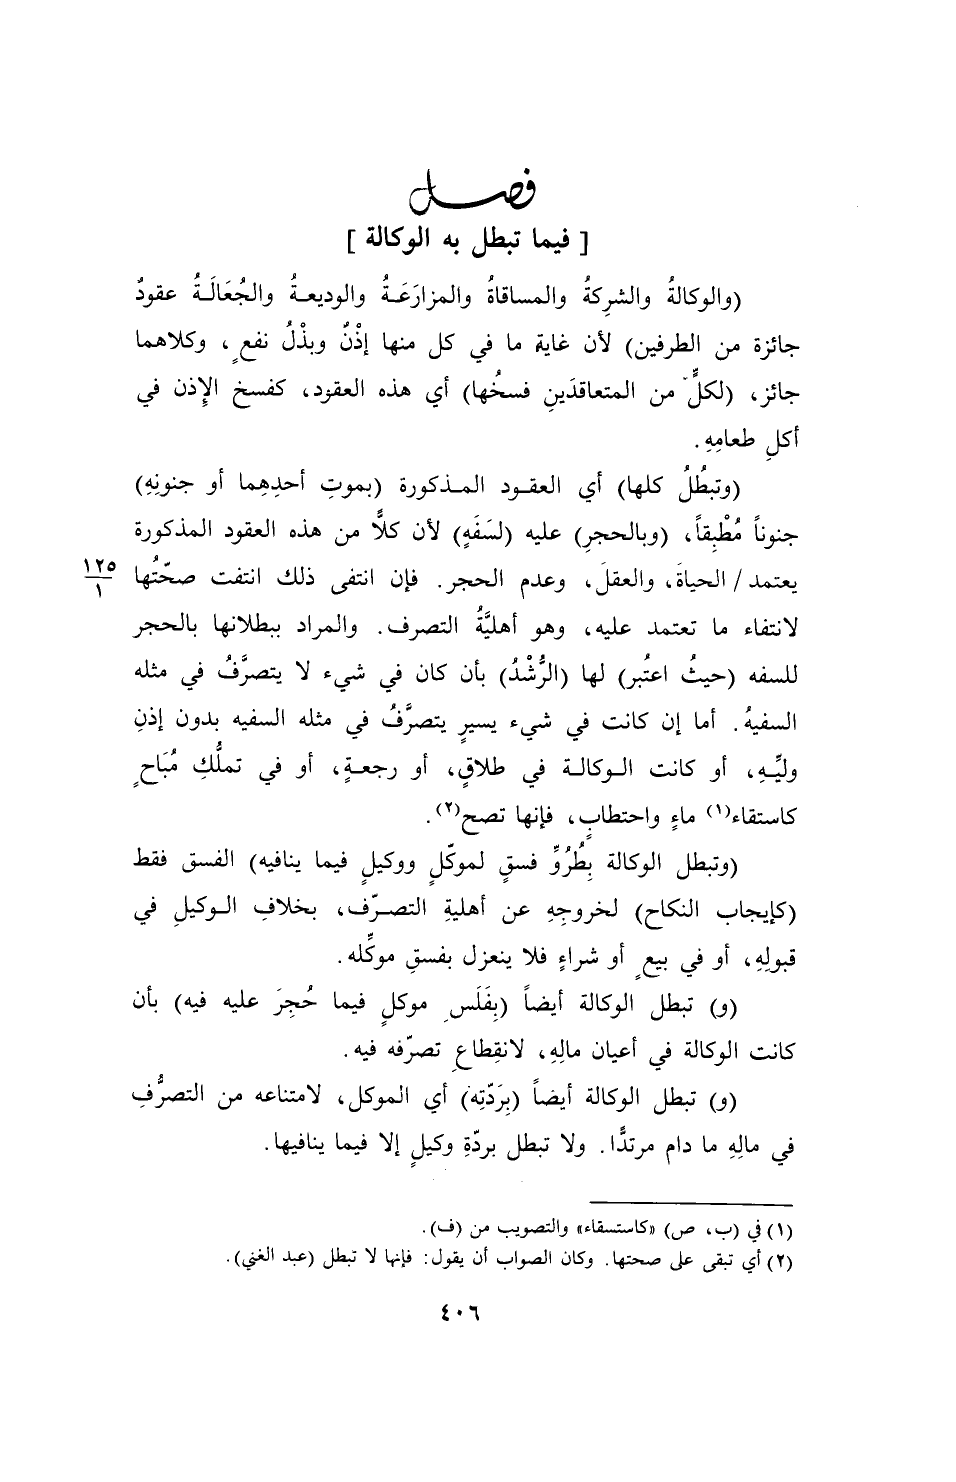 فصل
[ فيما تبطل به الوكالة ]
(والوكالةُ والشركةُ والمساقاةُ والمزارَعَةُ والوديعةُ والجُعَالَةُ عقودٌ
جائزة من الطرفين) لأن غاية ما في كل منها إذْنٌ وبذْلُ نفعٍ، وكلاهما
جائز، (لكلٍّ من المتعاقدَينِ فسخُها) أي هذه العقود، كفسخ الإذن في
أكلِ طعامِهِ.
(وتبطُلُ كلها) أي العقود المذكورة (بموتِ أحدِهِما أو جنونِهِ)
جنوناً مُطْبِقاً، (وبالحجرِ) عليه (لسَفَهٍ) لأن كلًّا من هذه العقود المذكورة
يعتمد / الحياةَ، والعقلَ، وعدم الحجر. فإن انتفى ذلك انتفت صحّتُها
١٢٥
١
لانتفاء ما تعتمد عليه، وهو أهليَّةُ التصرف. والمراد ببطلانها بالحجر
للسفه (حيثُ اعتُبر) لها (الرُّشْدُ) بأن كان في شيء لا يتصرَّفُ في مثله
السفيهُ. أما إن كانت في شيء يسيرٍ يتصرَّفُ في مثله السفيه بدون إذنِ
وليِّهِ، أو كانت الوكالة في طلاقٍ، أو رجعةٍ، أو في تملُّكِ مُبَاحٍ
كاستقاء(١) ماءٍ واحتطابٍ، فإنها تصح(٢).
(وتبطل الوكالة بِطُرُوِّ فسقٍ لموكّلٍ ووكيلٍ فيما ينافيه) الفسق فقط
(كإيجاب النكاح) لخروجِهِ عن أهليةِ التصرّف، بخلافِ الوكيلِ في
قبولِهِ، أو في بيعٍ أو شراءٍ فلا ينعزل بفسقِ موكِّله.
(و) تبطل الوكالة أيضاً (بِفَلَسِ موكلٍ فيما حُجِرَ عليه فيه) بأن
كانت الوكالة في أعيان مالِهِ، لانقِطاعِ تصرّفه فيه.
(و) تبطل الوكالة أيضاً (بِرَدّتِهِ) أي الموكل، لامتناعه من التصرُّفِ
في مالِهِ ما دام مرتدًّا. ولا تبطل بردّةِ وكيلٍ إلا فيما ينافيها.
(١) في (ب، ص) «كاستسقاء» والتصويب من (ف).
(٢) أي تبقى على صحتها. وكان الصواب أن يقول: فإنها لا تبطل (عبد الغني).
٤٠٦